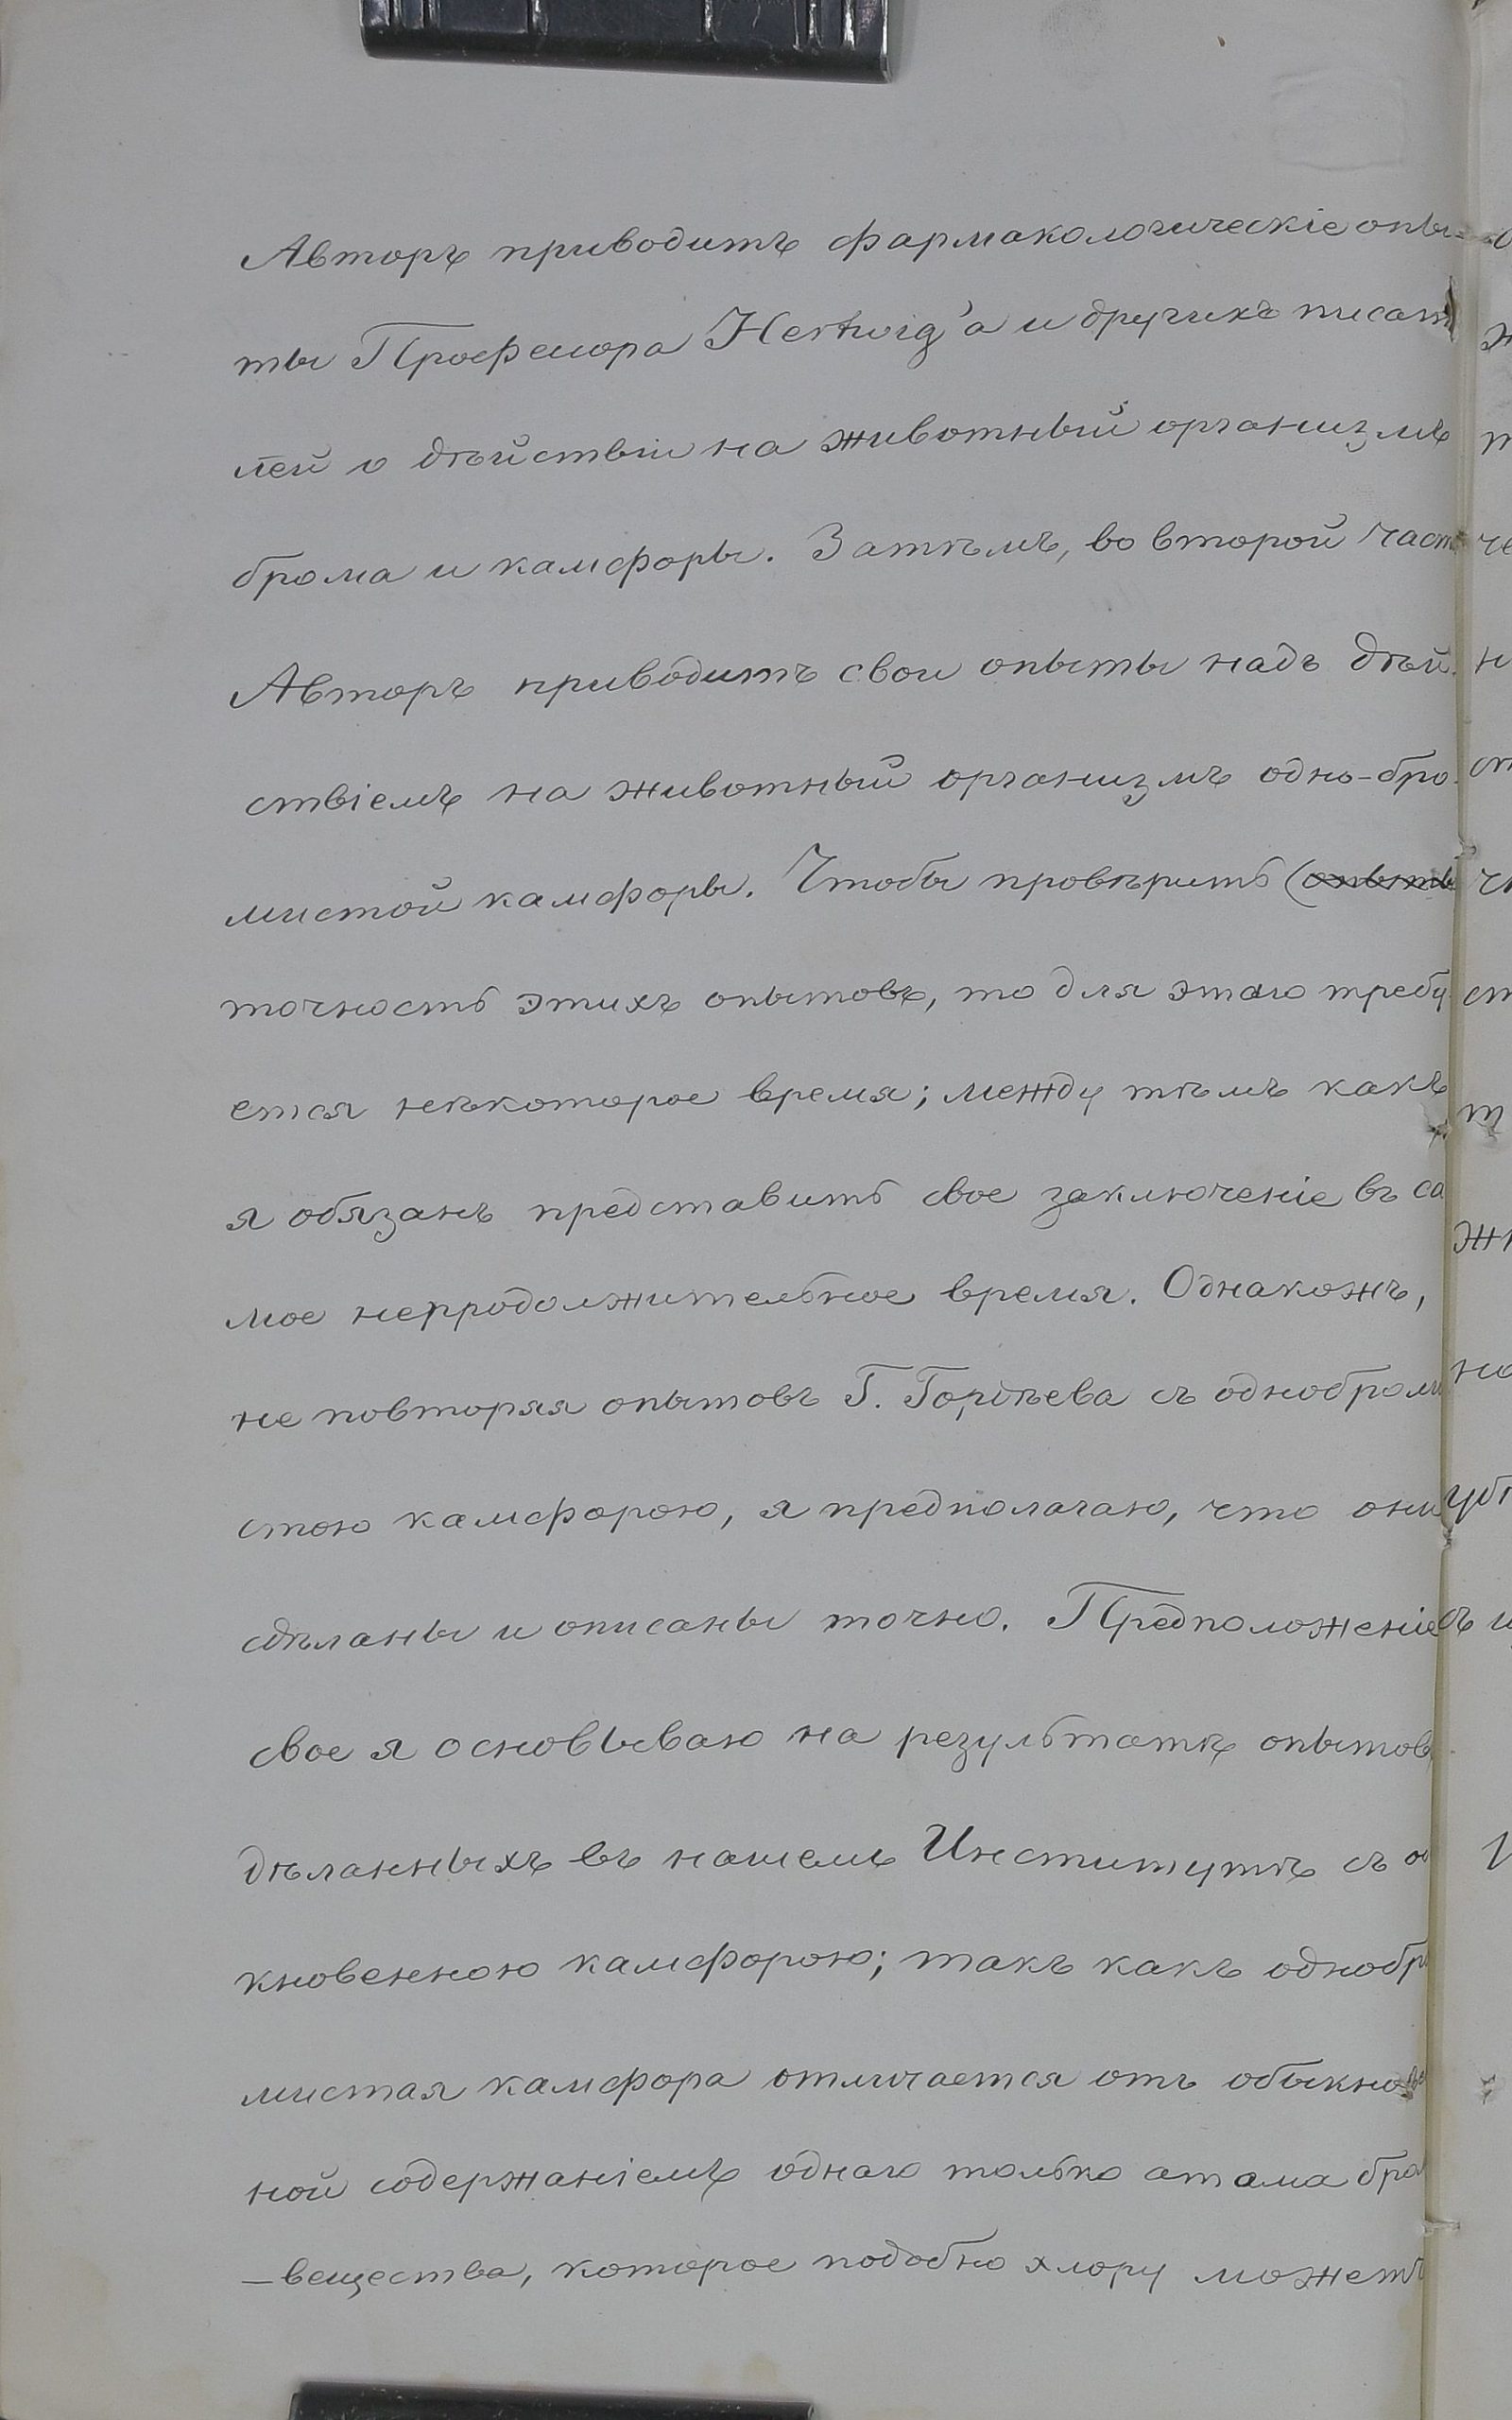 Авторъ приводитъ фармакологическіе опы-
ты Профессора Hertwig'а и другихъ писат
лей о дѣйствіи на животный организмъ
брома и камфоры. Затѣмъ, во второй част
Авторъ приводитъ свои опыты надъ дѣй-
ствіемъ на животный организмъ одно-бро-
мистой камфоры. Чтобы провѣрить (опыты
точность этихъ опытовъ, то для этаго требу
ется нѣкоторое время; между тѣмъ какъ
я обязанъ представить свое заключеніе въ са
мое непродолжительное время. Однакожъ,
не повторяя опытовъ Г. Гордѣева съ одноброми
стою камфорою, я предполагаю, что они
сдѣланы и описаны точно. Предположеніе
свое я основываю на результатѣ опытовъ
дѣланныхъ въ нашемъ Институтѣ съ об
кновенною камфорою; такъ какъ однобро
мистая камфора отличается отъ обыкнове
ной содержаніемъ однаго только атома бро
-вещества, которое подобно хлору можетъ